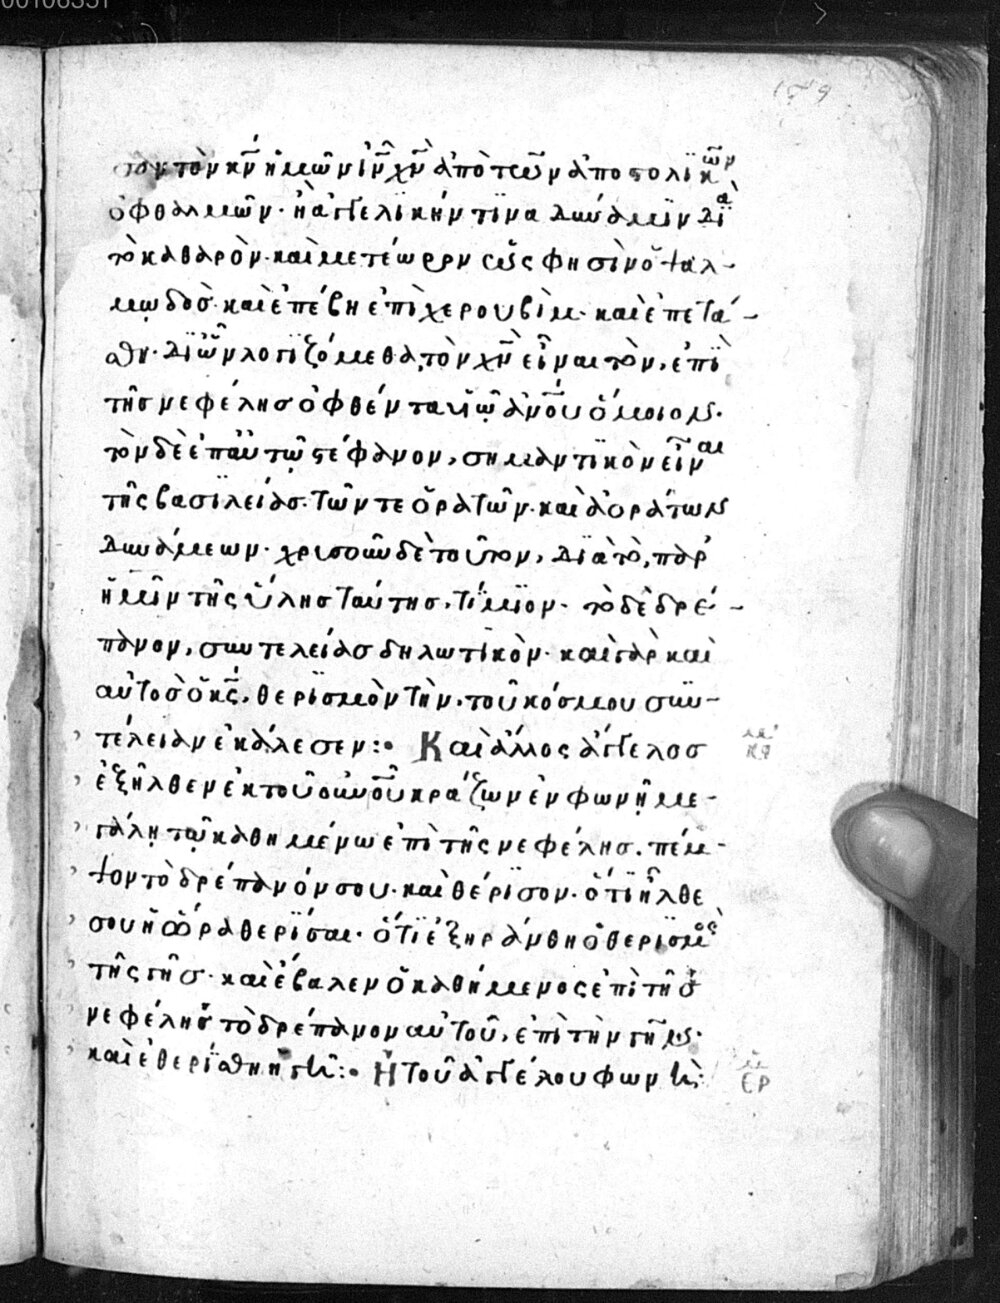 τὸν κν ἡμῶν ιν χν ἀπὸ τῶν ἀποστολικῶν
ὀφθαλμῶν· ἢ ἀγγελϊκήν τϊνα δυναμϊν δϊὰ
τὸ καθαρὸν· καὶ μετέωρον ὥς φησὶν ὁ ψαλ-
μωδὸσ· καὶ ἐπέβη ἐπὶ χερουβὶμ· καὶ ἐπετά-
σθη· δϊ ὧν λογϊζόμεθα, τὸν χν εἶναι τὸν, ἐπῒ
τῆσ νεφέλησ ὀφθέντα υἱῷ ἀνου ὅμοιον·
τὸν δὲ ἐπ αὐτῶ στέφανον, σημαντϊκὸν εἶναι
τῆς βασϊλείασ· τῶν τε ὁρατῶν· καὶ ἀοράτων
δυνάμεων· χρυσοῦν δὲ τοῦτον, δϊὰ τὸ, παρ
ἡμῖν τῆς ὕλησ ταύτησ, τίμϊον· τὸ δὲ δρέ-
πανον, συντελείασ δηλωτϊκὸν· καὶ γὰρ καὶ
αὐτοσ ὁ κς, θερϊσμὸν τὴν, τοῦ κόσμου συν-
τέλειαν ἐκάλεσεν:• Καὶ ἄλλος ἄγγελοσ
ἐξῆλθεν ἐκ τοῦ οὐνοῦ κράζων ἐν φωνῇ με-
γάλῃ τῷ καθημένω ἐπὶ τῆς νεφέλησ. πέμ-
ψον τὸ δρέπανόν σου· καὶ θέρϊσον· ὅτϊ ἦλθε
σου ἡ ὥρα θερϊσαι· ὅτϊ ἐξηράνθη ὁ θερϊσμὸς
τῆς γῆσ· καὶ ἔβαλεν ὁ καθήμενος ἐπὶ τῆσ
νεφέλησ τὸ δρέπανον αὐτοῦ, ἐπὶ τὴν γῆν·
καὶ ἐθερίσθη ἡ γῆ:• Ἡ τοῦ ἀγγέλου φωνὴ:
κϥ
ερ